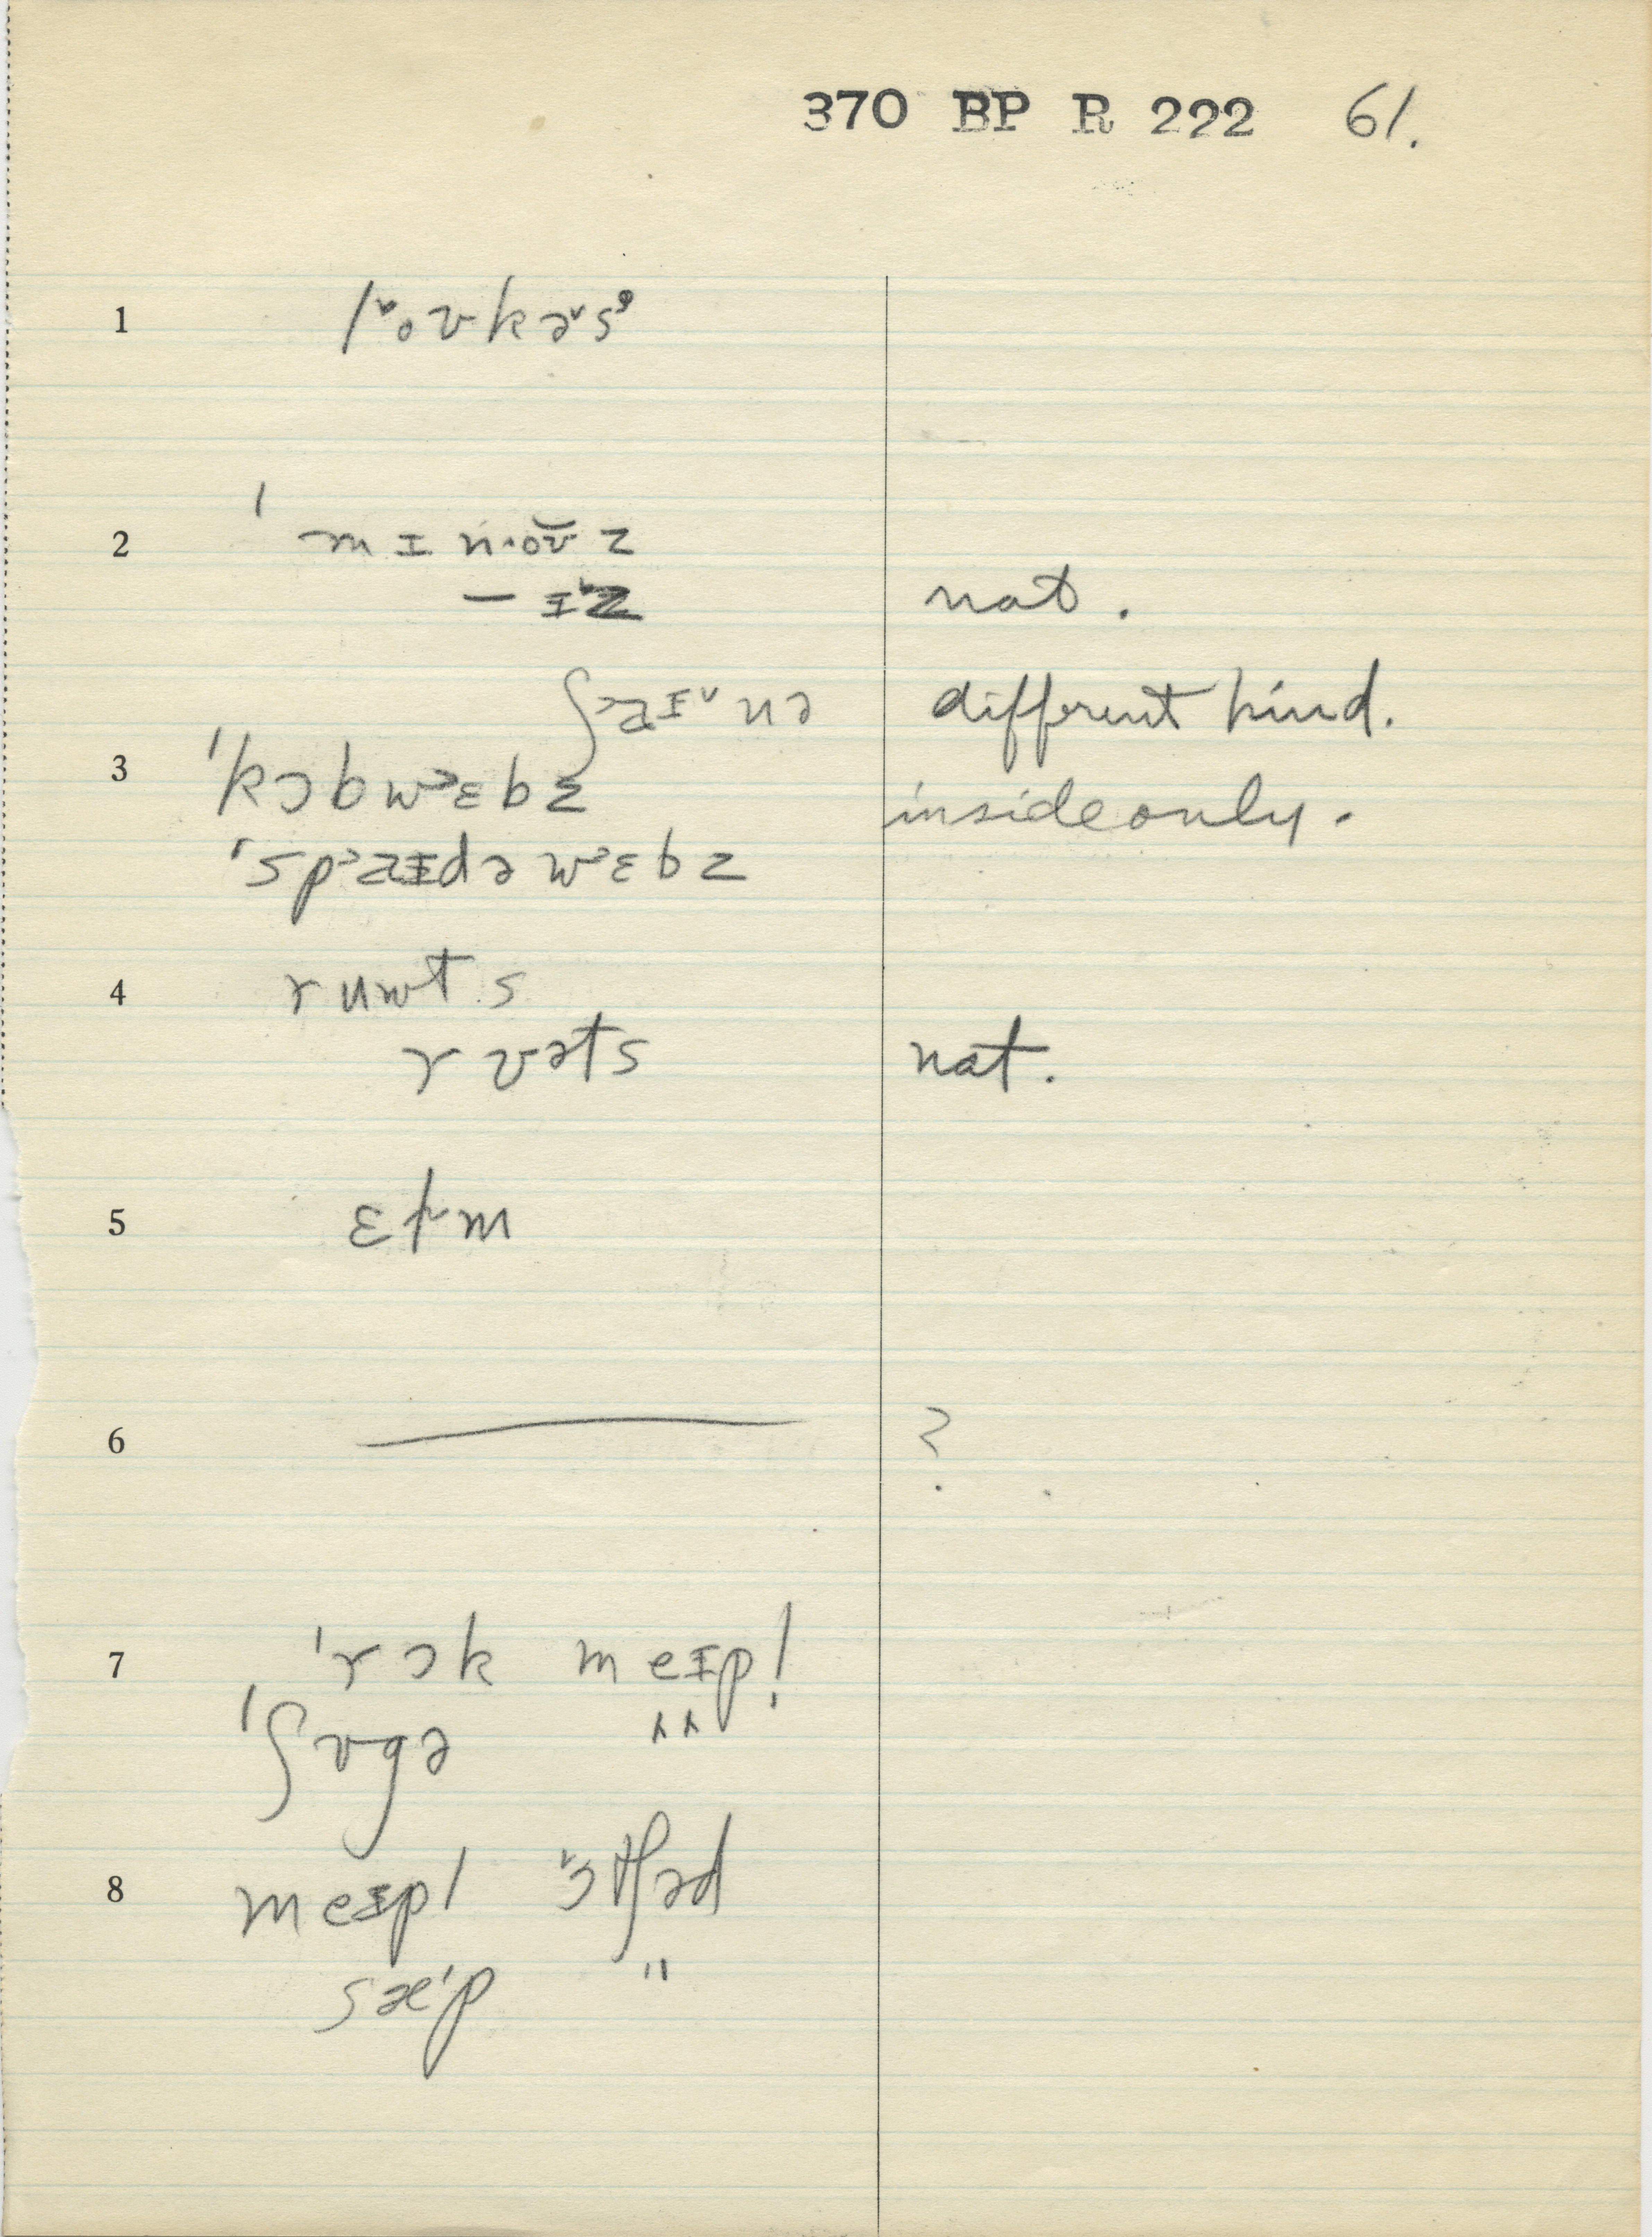 370 BP R 222 61.
1 lˇoʊkəˇsᶦ
2 ˈmɪn·oʊ̆z
– ɪˇz nat.
ʃ˃aɪˇnə different kind.
3 ˈkɔbw˃ɛbz inside only.
ˈsp˃aɪdə w˃ɛbz
4 ruwts
rʊəts nat.
5 ɛlˇm
6 — ?
7 ˈrɔk meɪpl̩
ˈʃʊgə "
8 meɪpl ˇɔtʃəd
sæˈp "